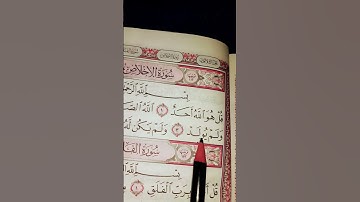 سُورَةُ الإِخْلَاصِ
بِسْمِ اللَّهِ الرَّحْمَ
قُلْ هُوَ اللَّهُ أَحَدٌ ١ اللَّهُ الصَّ
وَلَمْ يُولَدْ ٣ وَلَمْ يَكُن لَّهُ
سُورَةُ الْفَلَ
بِسْمِ اللَّهِ
قُلْ أَ بِرَبِّ الْفَلَقِ ١